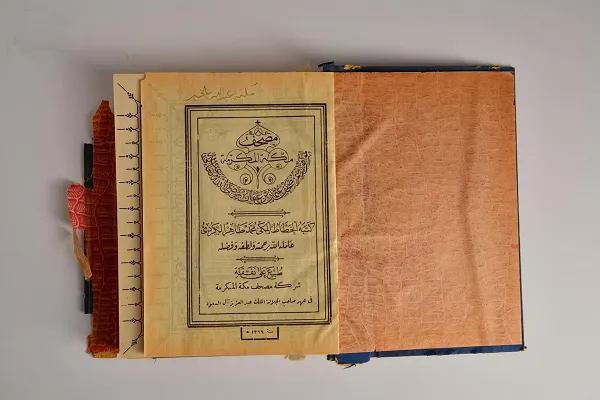 مصحف
مكة المكرمة
كتبه الخطاط المكي محمد طاهر الكردي
عامله الله برحمته ولطفه وفضله
طبع على نفقة
شركة مصحف مكة المكرمة
في عهد صاحب الجلالة الملك عبد العزيز آل السعود
سنة ١٣٦٩ ه